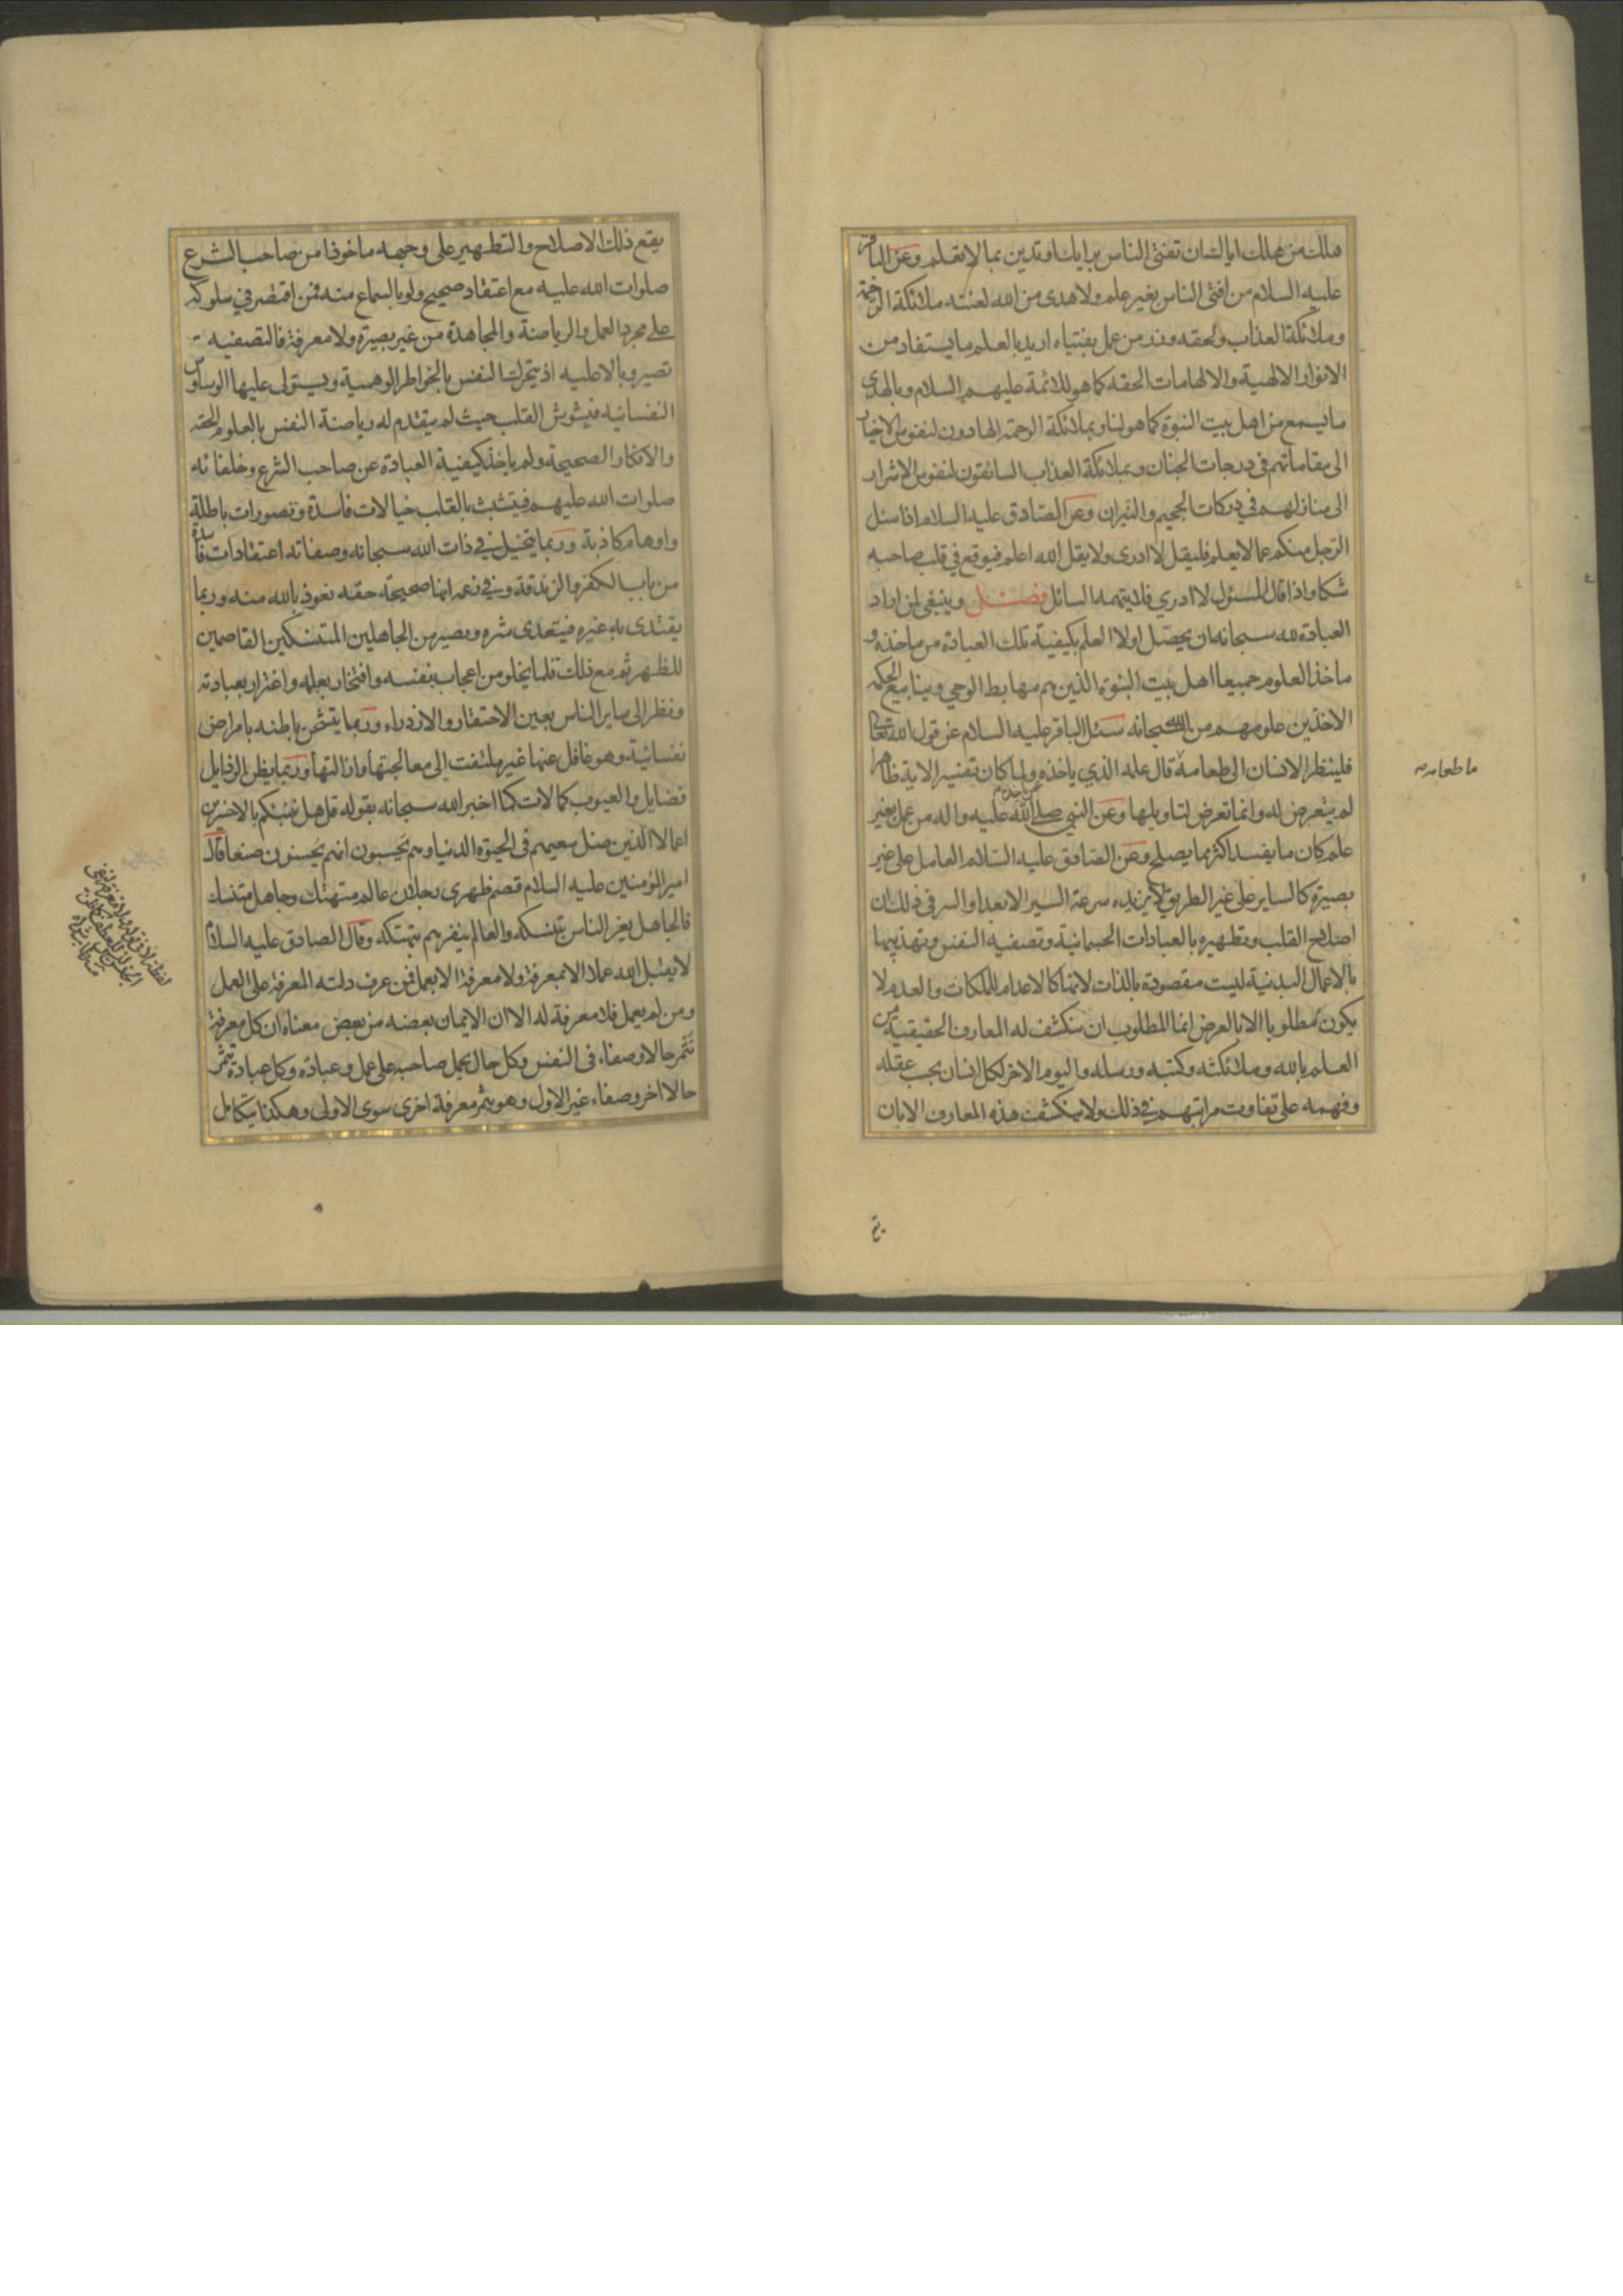 هلك من هلك اياك ان تفتى الناس برايك او تدين بما لا تعلم وعن الباقر
عليه السلام من افتى الناس بغير علم ولا هدى من الله لعنته ملائكة الرحمة
وملائكة العذاب ولحقه وزر من عمل بفتياه اريد بالعلم ما يستفاد من
الانوار الالهية والالهامات الحقه كما هو للائمة عليهم السلام وبالهدى
ما يسمع من اهل بيت النبوة كما هو لنا وبملائكة الرحمة الهادون لنفوس الاخيار
الى مقاماتهم فى درجات الجنان وبملائكة العذاب السائقون لنفوس الاشرار
الى منازلهم في دركات الجحيم والنيران وعن الصادق عليه السلام اذا سئل
الرجل منكم عما لا يعلم فليقل لا ادرى ولا يقل الله اعلم فيوقع في قلب صاحبه
شكا واذا قال المسئول لا ادري فلا يتهمه السائل فصل وينبغى لمن اراد
العبادة لله سبحانه ان يحصل اولا العلم بكيفية تلك العبادة من ماخذه و
ماخذ العلوم جميعا اهل بيت النبوة الذين هم مهابط الوحي وينابيع الحكمه
الاخذين علومهم من الله سبحانه سئل الباقر عليه السلام عن قول الله تعالى
فلينظر الانسان الى طعامه قال علمه الذي ياخذه عمن ياخذه ولما كان تفسير الاية ظاهرا
ما طعامه
لم يتعرض له وانما تعرض لتاويلها وعن النبي صلى الله عليه واله من عمل بغير
علم كان ما يفسد اكثر مما يصلح وعن الصادق عليه السلام العامل على غير
بصيرة كالساير على غير الطريق لا يزيده سرعة السير الا بعدا والسر فى ذلك ان
اصلاح القلب وتطهيره بالعبادات الجسمانية وتصفيه النفس وتهذيبها
بالاعمال البدنية ليست مقصودة بالذات لانها كالاعدام للملكات والعدم لا
يكون مطلوبا الا بالعرض انما المطلوب ان ينكشف له المعارف الحقيقية من
العلم بالله وملائكته وكتبه ورسله واليوم الاخر لكل انسان بحسب عقله
وفهمه على تفاوت مراتبهم في ذلك ولا ينكشف هذه المعارف الا بان
يقع
يقع ذلك الاصلاح والتطهير على وجهه ماخوذا من صاحب الشرع
صلوات الله عليه مع اعتقاد صحيح ولو بالسماع منه فمن اقتصر في سلوكه
على مجرد العمل والرياضة والمجاهدة من غير بصيرة ولا معرفة فالتصفيه
تصير وبالا عليه اذ يتحرك النفس بالخواطر الوهمية ويستولى عليها الوساوس
النفسانيه فيشوش القلب حيث لم يتقدم له رياضة النفس بالعلوم الحقه
والافكار الصحيحة ولم ياخذ كيفية العبادة عن صاحب الشرع وخلفائه
صلوات الله عليهم فيتشبث بالقلب خيالات فاسدة وتصورات باطلة
واوهام كاذبة وربما يتخيل في ذات الله سبحانه وصفاته اعتقادات فاسدة
من باب الكفر والزندقة وفي زعمه انها صحيحة حقه نعوذ بالله منه وربما
يقتدى به غيره فيتعدى شره ويصير من الجاهلين المتنسكين القاصمين
للظهر ثم مع ذلك قلما يخلو من اعجاب بنفسه وافتخار بعلمه واغترار بعبادته
ونظر الى ساير الناس بعين الاحتقار والازدراء وربما يتشحن باطنه بامراض
نفسانية وهو غافل عنها غير ملتفت الى معالجتها وازالتها وربما يظن الرذايل
فضايل والعيوب كمالات كما اخبر الله سبحانه بقوله قل هل ننبئكم بالاخسرين
اعمالا الذين ضل سعيهم فى الحيوة الدنيا وهم يحسبون انهم يحسنون صنعا قال
امير المؤمنين عليه السلام قصم ظهرى رجلان عالم متهتك وجاهل متنسك
فالجاهل يغر الناس بتنسكه والعالم ينفرهم بتهتكه وقال الصادق عليه السلام
لا يقبل الله عملا الا بمعرفة ولا معرفة الا بعمل فمن عرف دلته المعرفة على العمل
ومن لم يعمل فلا معرفة له الا ان الايمان بعضه من بعض معناه ان كل معرفة
تثمر حالا وصفاء فى النفس وكل حال يحمل صاحبه على عمل وعبادة وكل عبادة تثمر
حالا اخر وصفاء غير الاول وهو يثمر معرفة اخرى سوى الاولى وهكذا يتكامل